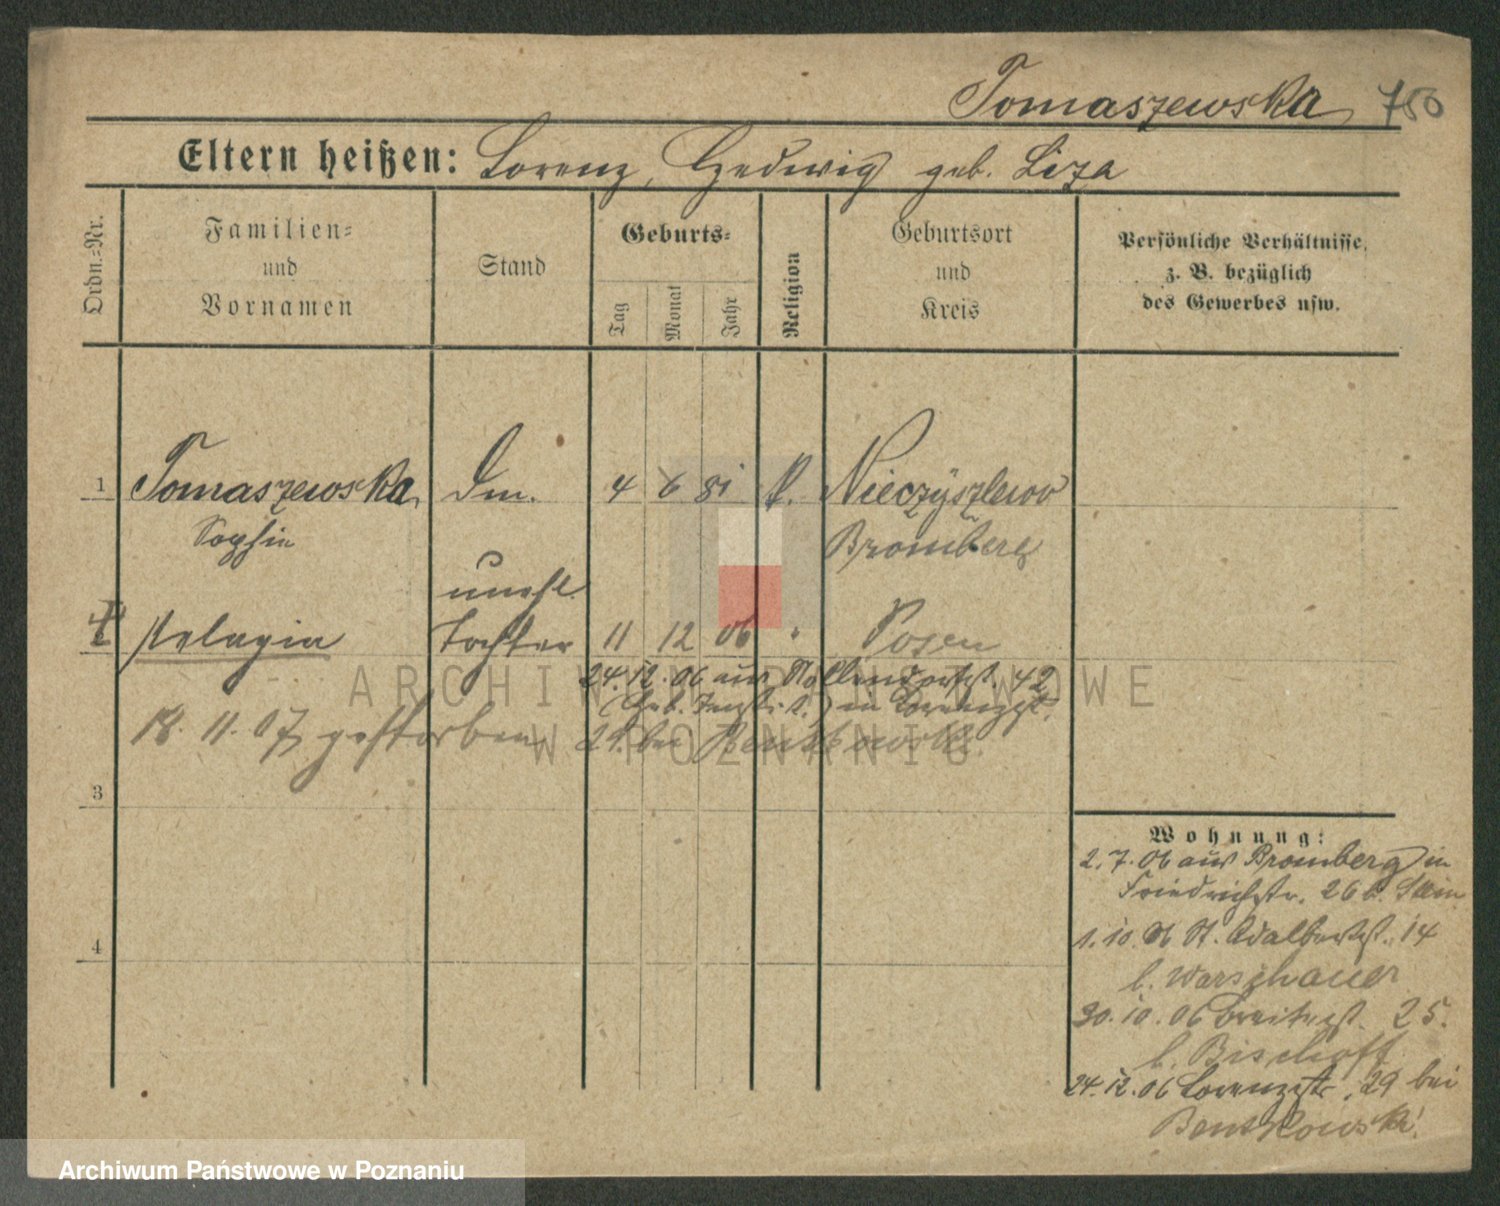 Tomaszewska 750
Eltern heißen: Lorenz, Hedwig geb. Liza
Ordn.-Nr.
Familien-
und
Vornamen
Stand
Geburts-
Tag
Monat
Jahr
Religion
Geburtsort
und
Kreis
Persönliche Verhältnisse,
z. B. bezüglich
des Gewerbes usw.
1 Tomaszewska Dm. 4 6 81 k. Nieczyszlewo
Sophie Bromberg
unehl.
Pelagia Tochter 11 12 06 " Posen
24.12.06 aus Nollendorfst. 42
in Lorenzst.
18. 11. 07 gestorben 29. bei Bentkowski.
3
4
Wohnung:
2.7.06 aus Bromberg in
Friedrichstr. 26 b. Stein
1.10.06 St. Adalbertst. 14
b. Warschauer
30.10.06 Breitest. 25.
b. Bischoff
24.12.06 Lorenzstr. 29 bei
Bentkowski.
ARCHIWUM PAŃSTWOWE
W POZNANIU
Archiwum Państwowe w Poznaniu